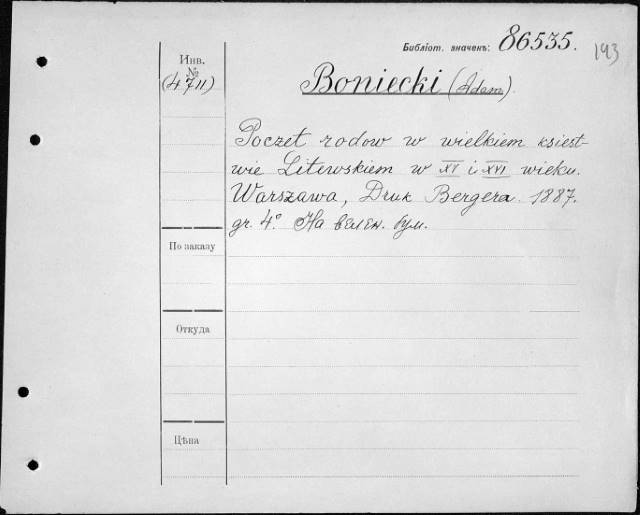 Библіот. значенъ: 86535.
193
Инв.
№
(4711)
Boniecki (Adam).
Poczet rodow w wielkiem ksiest-
wie Litewskiem w XV i XVI wieku.
Warszawa, Druk Bergera. 1887.
gr. 4°. На велен. бум.
По заказу
Откуда
Цѣна